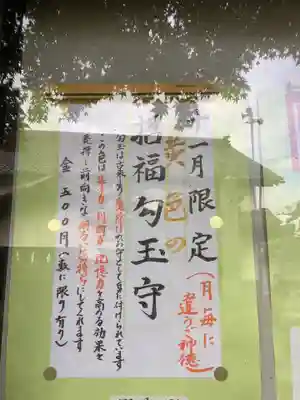 一月限定
(月毎に
違う御神徳)
黄色の
招福勾玉守
勾玉は古来より魔除けのお守として身に付けられています
この色は
記憶力を高める効果と
前向きな
にしてくれます
金五〇〇円(数に限り有り)